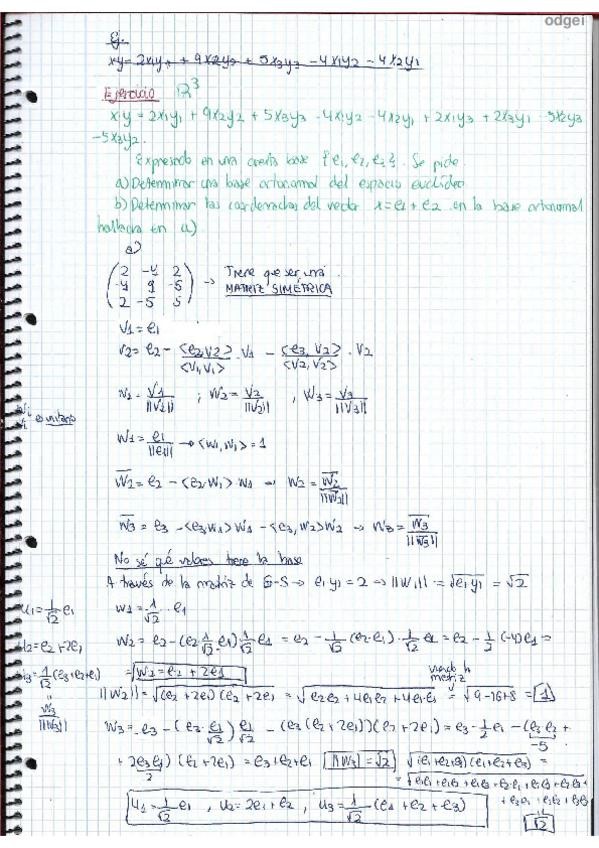 odgei
Ej.
x·y = 2x1y1 + 9x2y2 + 5x3y3 - 4x1y2 - 4x2y1
Ejercicio R³
x·y = 2x1y1 + 9x2y2 + 5x3y3 - 4x1y2 - 4x2y1 + 2x1y3 + 2x3y1 - 5x2y3
-5x3y2.
Expresado en una cierta base {e1, e2, e3}. Se pide
a) Determinar una base ortonormal del espacio euclídeo
b) Determinar las coordenadas del vector x = e1 + e2 en la base ortonormal
hallada en a)
a)
2 -4 2
-4 9 -5 → Tiene que ser una
2 -5 5 MATRIZ SIMÉTRICA
V1 = e1
V2 = e2 - <e2,V2>/<V1,V1> · V1 - <e3,V2>/<V2,V2> · V2
W1 = V1/||V1|| ; W2 = V2/||V2|| , W3 = V3/||V3||
Wi es unitario
W1 = e1/||e1|| → <W1,W1> = 1
W2 = e2 - <e2,W1> W1 → W2 = W2/||W2||
W3 = e3 - <e3,W1> W1 - <e3,W2> W2 → W3 = W3/||W3||
No sé qué valores tiene la base
A través de la matriz de G-S → e1y1 = 2 → ||W1|| = √e1y1 = √2
u1 = 1/√2 e1
W1 = 1/√2 · e1
u2 = e2 + 2e1
W2 = e2 - (e2 1/√2 e1) 1/√2 e1 = e2 - 1/√2 (e2·e1) · 1/√2 e1 = e2 - 1/2 (-4)e1 =
u3 = 1/√2 (e3+e2+e1)
= W2 = e2 + 2e1
viendo la
matriz
W3/||W3||
||W2|| = √(e2+2e1)(e2+2e1) = √e2e2 + 4e1e2 + 4e1·e1 = √9-16+8 = 1
W3 = e3 - (e3 · e1/√2) e1/√2 - (e3(e2+2e1))(e2+2e1) = e3 - 1/2 · 2 e1 - (e3e2 +
-5
+ 2e3e1) (e2+2e1) = e3+e2+e1 ||W3|| = √2 √(e1+e2+e3)(e1+e2+e3) =
2
u1 = 1/√2 e1 , u2 = 2e1 + e2 , u3 = 1/√2 (e1 + e2 + e3)
√2